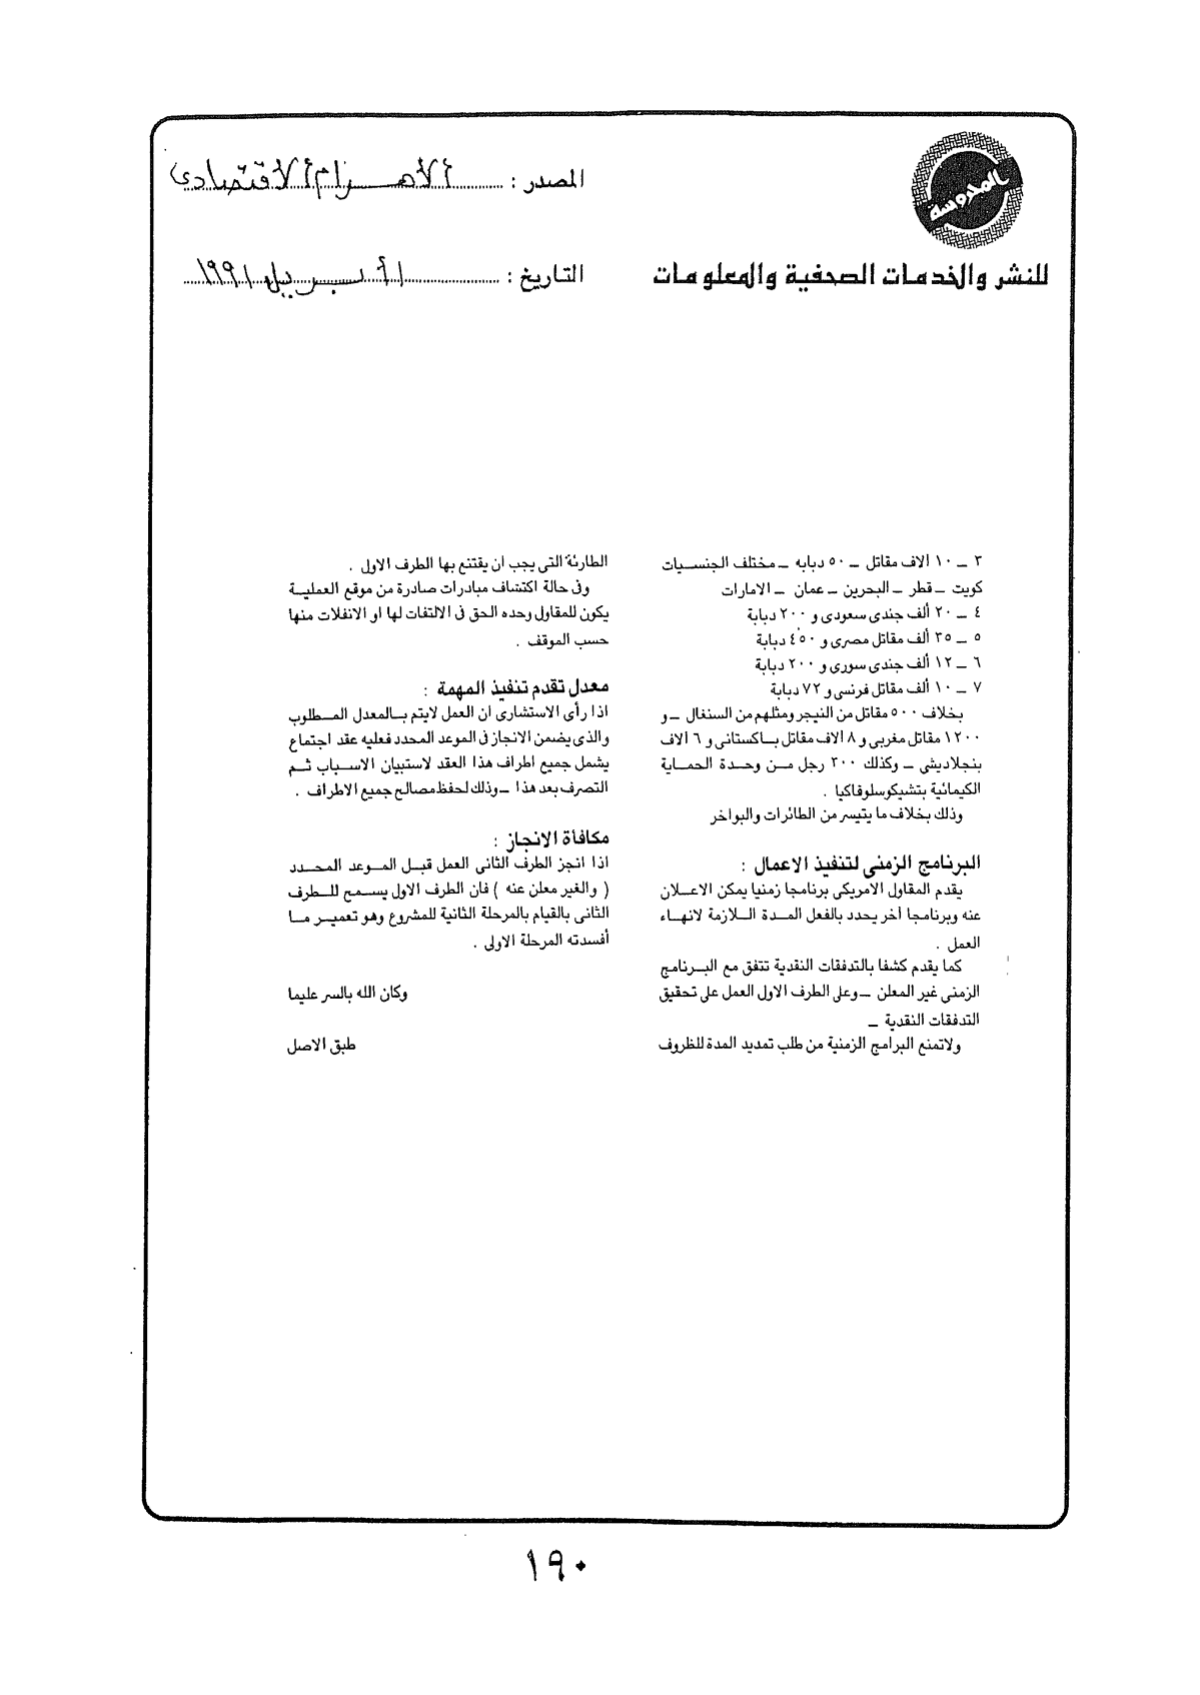 المحروسة
للنشر والخدمات الصحفية والمعلومات
المصدر : الأهرام الاقتصادى
التاريخ : ١ أبريل ١٩٩١
٣ ـ ١٠ الاف مقاتل ـ ٥٠ دبابه ـ مختلف الجنسيات
كويت ـ قطر ـ البحرين ـ عمان ـ الامارات
٤ ـ ٢٠ ألف جندى سعودى و ٢٠٠ دبابة
٥ ـ ٣٥ ألف مقاتل مصرى و ٤٥٠ دبابة
٦ ـ ١٢ ألف جندى سورى و ٢٠٠ دبابة
٧ ـ ١٠ ألف مقاتل فرنسى و ٧٢ دبابة
بخلاف ٥٠٠ مقاتل من النيجر ومثلهم من السنغال ـ و
١٢٠٠ مقاتل مغربى و ٨ الاف مقاتل باكستانى و ٦ الاف
بنجلاديشى ـ وكذلك ٢٠٠ رجل من وحدة الحماية
الكيمائية بتشيكوسلوفاكيا .
وذلك بخلاف ما يتيسر من الطائرات والبواخر
البرنامج الزمنى لتنفيذ الاعمال :
يقدم المقاول الامريكى برنامجا زمنيا يمكن الاعلان
عنه وبرنامجا اخر يحدد بالفعل المدة اللازمة لانهاء
العمل .
كما يقدم كشفا بالتدفقات النقدية تتفق مع البرنامج
الزمنى غير المعلن ـ وعلى الطرف الاول العمل على تحقيق
التدفقات النقدية ـ
ولاتمنع البرامج الزمنية من طلب تمديد المدة للظروف
الطارئة التى يجب ان يقتنع بها الطرف الاول .
وفى حالة اكتشاف مبادرات صادرة من موقع العملية
يكون للمقاول وحده الحق فى الالتفات لها او الانفلات منها
حسب الموقف .
معدل تقدم تنفيذ المهمة :
اذا رأى الاستشارى ان العمل لايتم بالمعدل المطلوب
والذى يضمن الانجاز فى الموعد المحدد فعليه عقد اجتماع
يشمل جميع اطراف هذا العقد لاستبيان الاسباب ثم
التصرف بعد هذا ـ وذلك لحفظ مصالح جميع الاطراف .
مكافأة الانجاز :
اذا انجز الطرف الثانى العمل قبل الموعد المحدد
( والغير معلن عنه ) فان الطرف الاول يسمح للطرف
الثانى بالقيام بالمرحلة الثانية للمشروع وهو تعمير ما
أفسدته المرحلة الاولى .
وكان الله بالسر عليما
طبق الاصل
١٩٠